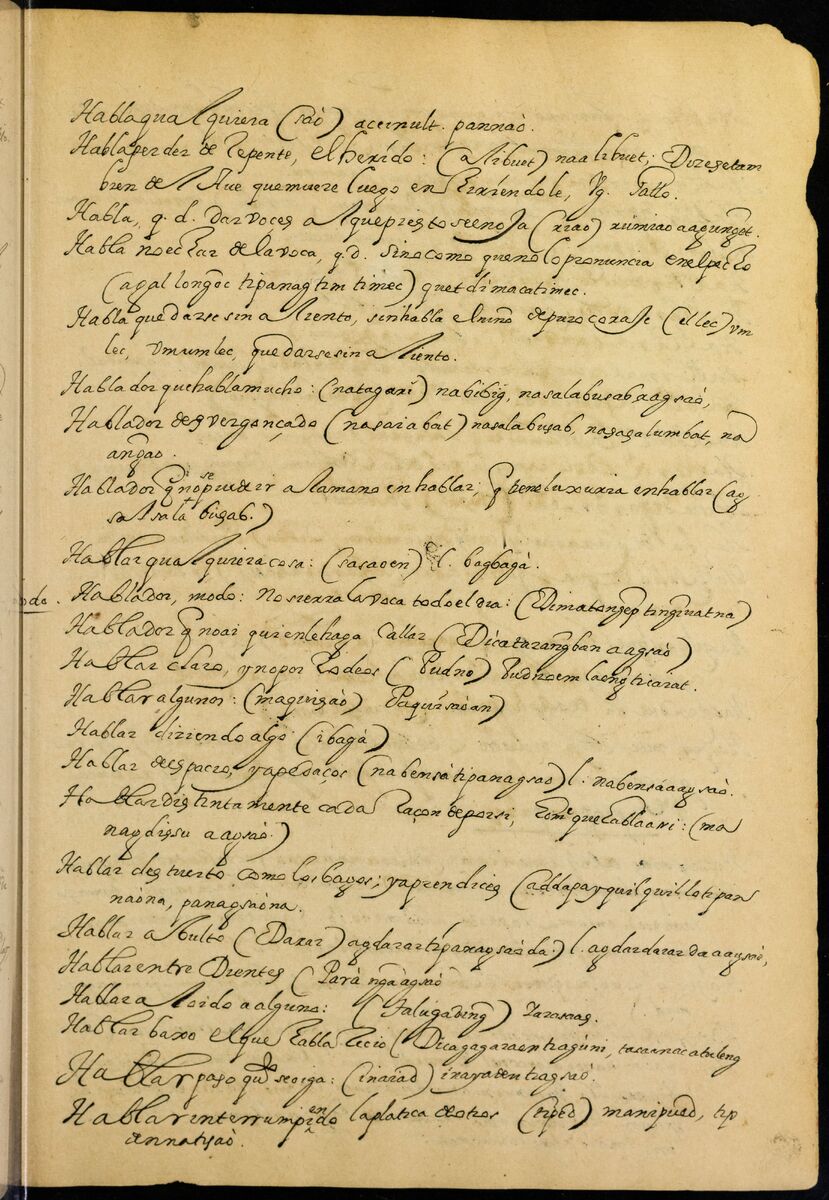 Habla qualquiera (saò) acernult. pannaò.
Habla perder de repente, el herido: (alibuet) naalibuet; Dizesetam
bien del Aue que muere luego en hiriendole, Vg. Gallo.
Habla, q. d. dar voçes al que presto se enoja (riao) rumiao aagungot.
Habla no echar de la voca, q. d. sino como que no lo pronuncia en el pecho
(agal longoc tipanagtim timec) quet dimacatimec.
Habla quedarse sin aliento, sin habla el niño de puro coraje (el lec) vm
lec, vmumlec, quedarse sin aliento.
Hablador que habla mucho: (natagari) nabibig, nasalabusab, aagsaò,
Hablador desvergonçado (nasariabat) nasalabusab, nasagalumbat, na
angao.
Hablador q no se puede ir a la mano en hablar; q tiene luxuria en hablar (ag
salsala busab.)
Hablar qualquiera cosa: (sasaoen) l. bagbagà.
Hablador, modo: No sierra la voca todo el dia: (Dimatongep tingiuatna)
Hablador q no ai quien le haga callar (Dicatarangban aagsaò)
Hablar claro, y no por rodeos (Pudno) Pudnoem laeng ticarat.
Hablar algunos: (maquisaò) Paquisaoan)
Hablar diziendo algo (ibagà)
Hablar despacio, y a pedaços (nabensà tipanagsao) l. nabensa aagsaò.
Hablar distintamente cada raçon de por si, como que habla ari: (ma
naydissu aagsaò.)
Hablar destuerto como los bagos; y aprendices (addapay quilquil lotipan
naona, panagsaòna.
Hablar a bulto (Darar) agdarar tipanagsaò da.) l. agdardarar da aagsaò,
Hablar entre Dientes (Parà ngaagsaò
Hablar al oido a alguno: (Salugading) Yarasaas.
Hablar baxo el que habla recio (Dicagagaraentragùni,
Hablar paso que se oiga: (inaiad) inayaden tragsaò.
Hablar interrumpiendo la platica de otros (tiped) manipued, tip
dennatisaò.